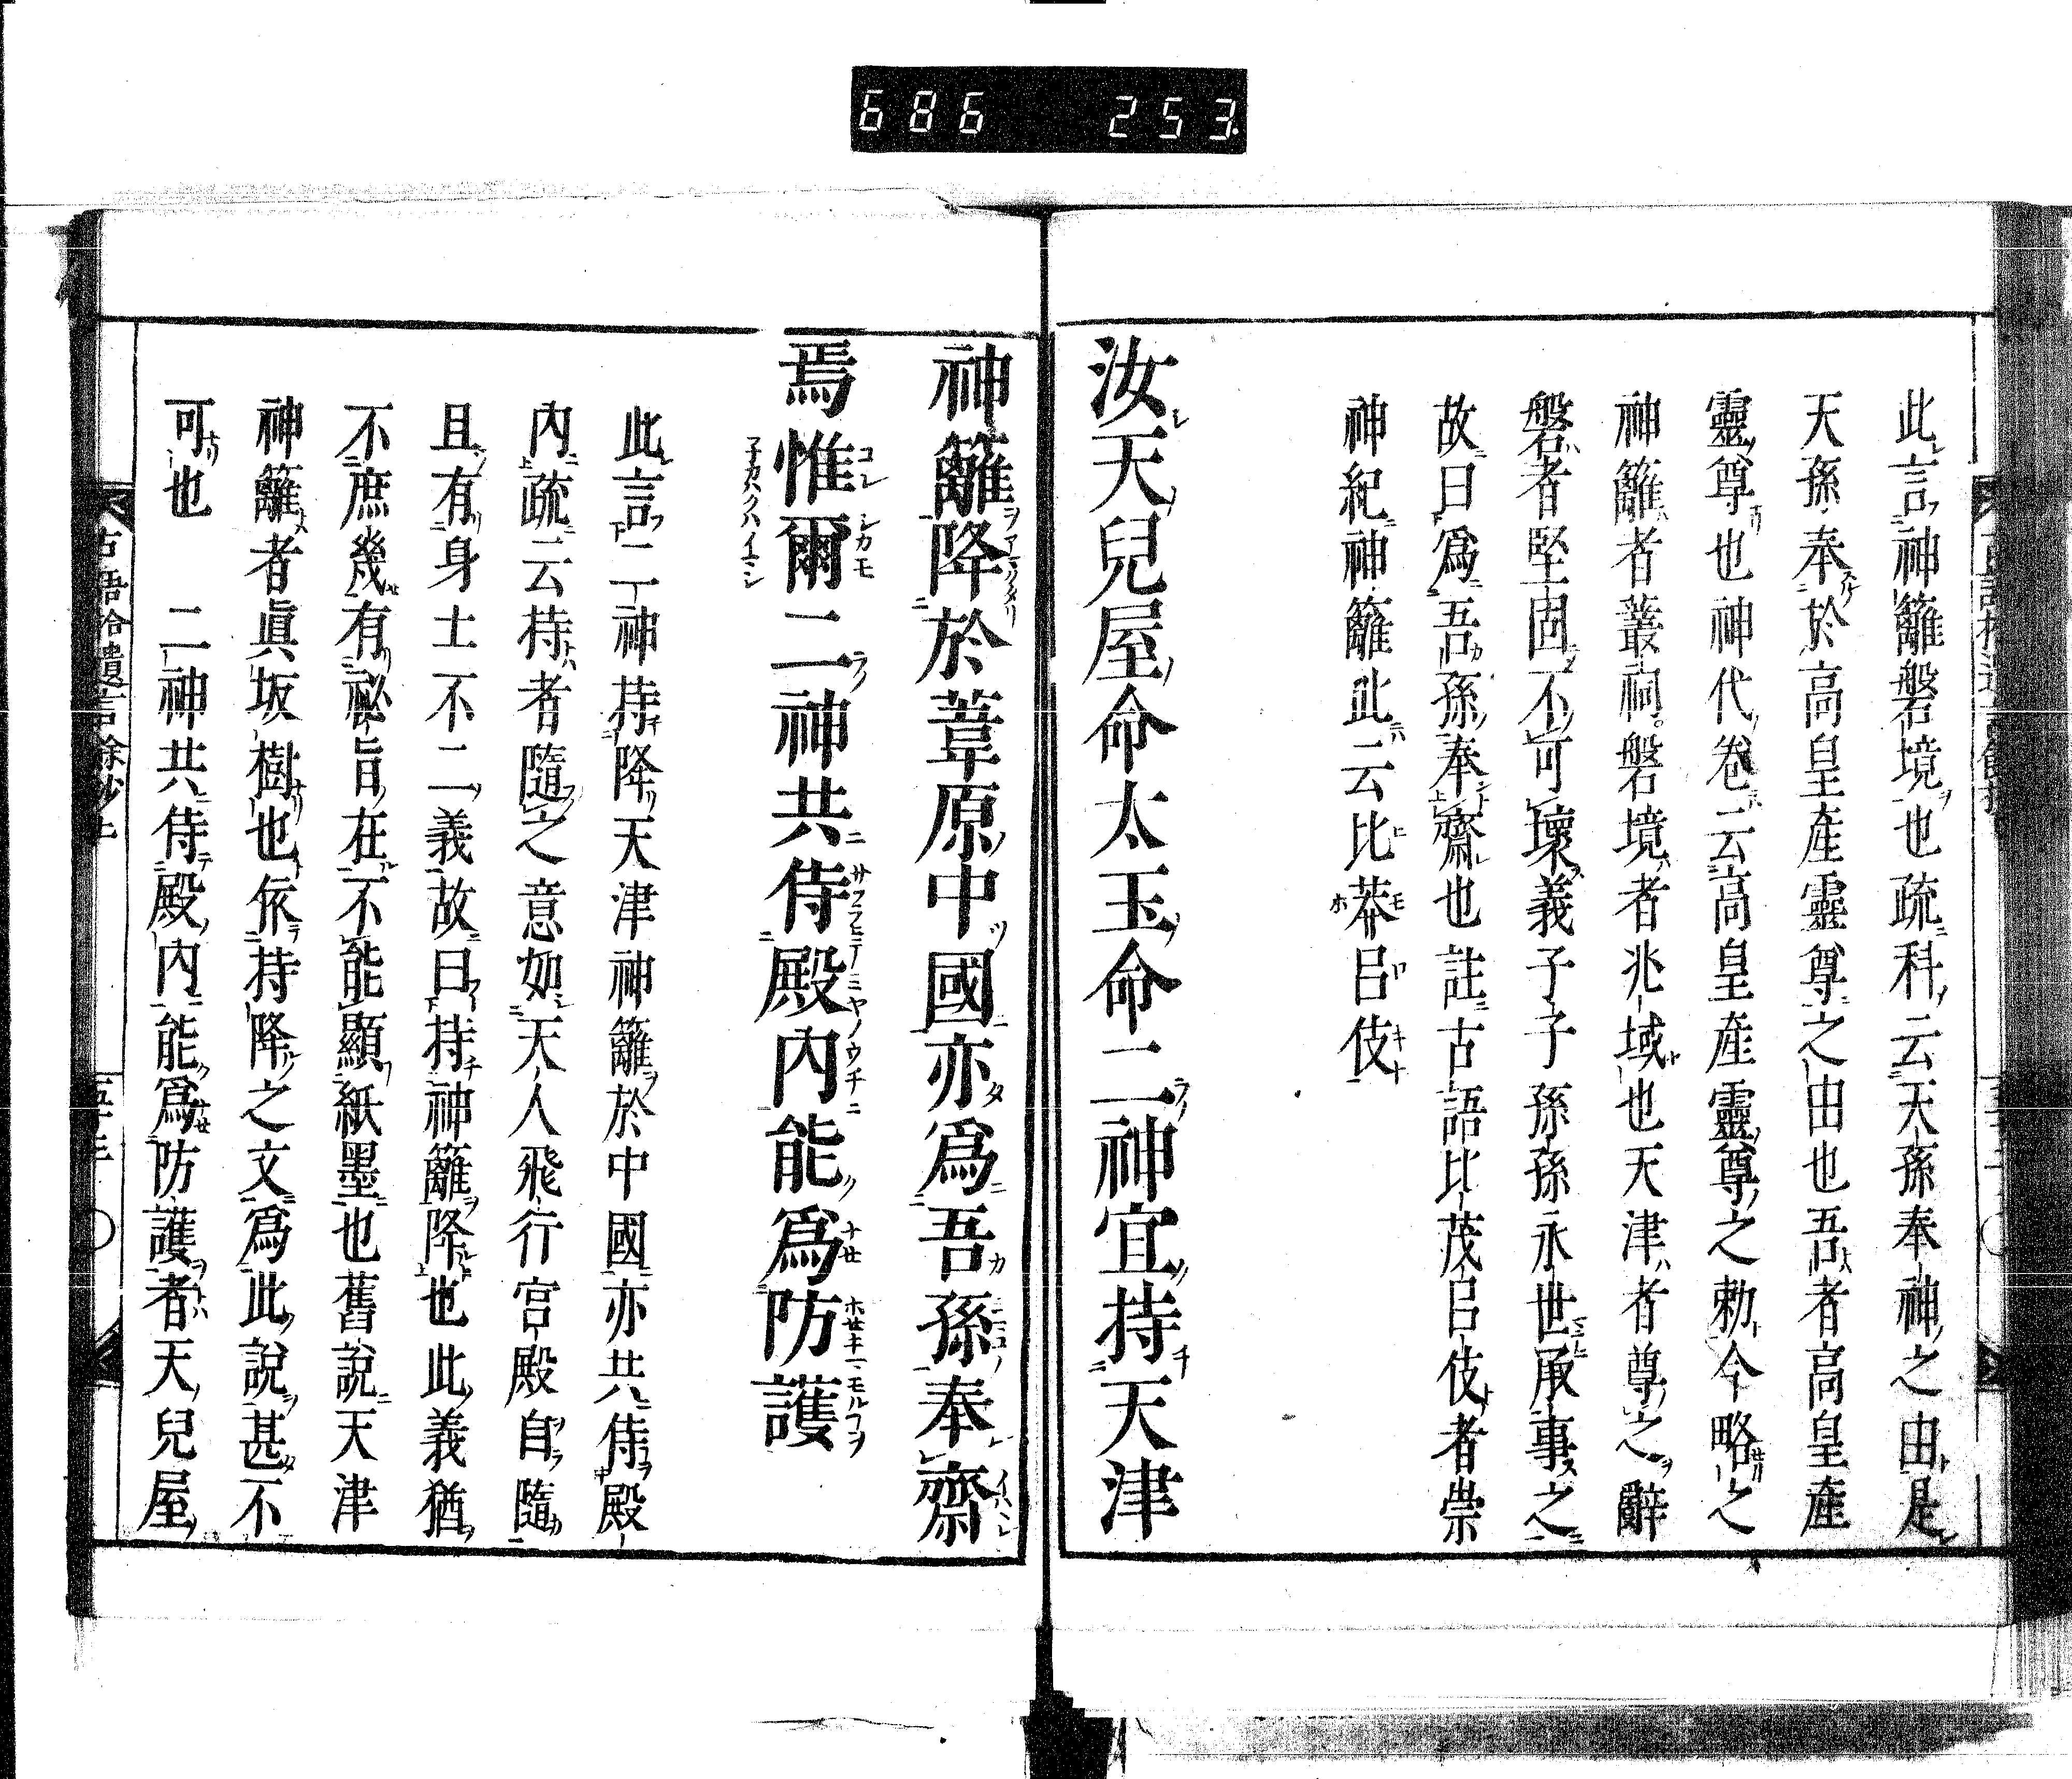 686 253
此言神籬磐境也疏科云天孫奉神之由是
天孫奉於高皇產靈尊之由也吾者高皇產
靈尊也神代卷云高皇產靈尊之勅今略之
神籬者叢祠磐境者兆域也天津者尊之辭
磐者堅固不可壞義子子孫孫永世承事之
故曰爲吾孫奉齋也註古語比茂呂伎者崇
神紀神籬此云比莽呂伎
汝天兒屋命太玉命二神宜持天津
神籬降於葦原中國亦爲吾孫奉齋
焉惟爾二神共侍殿內能爲防護
此言二神持降天津神籬於中國亦共侍殿
內疏云持者隨之意如天人飛行宮殿自隨
且有身土不二義故曰持神籬降也此義猶
不庶幾有祕旨在不能顯紙墨也舊說天津
神籬者眞坂樹也依持降之文爲此說甚不
可也　二神共侍殿內能爲防護者天兒屋
古語拾遺言餘抄上